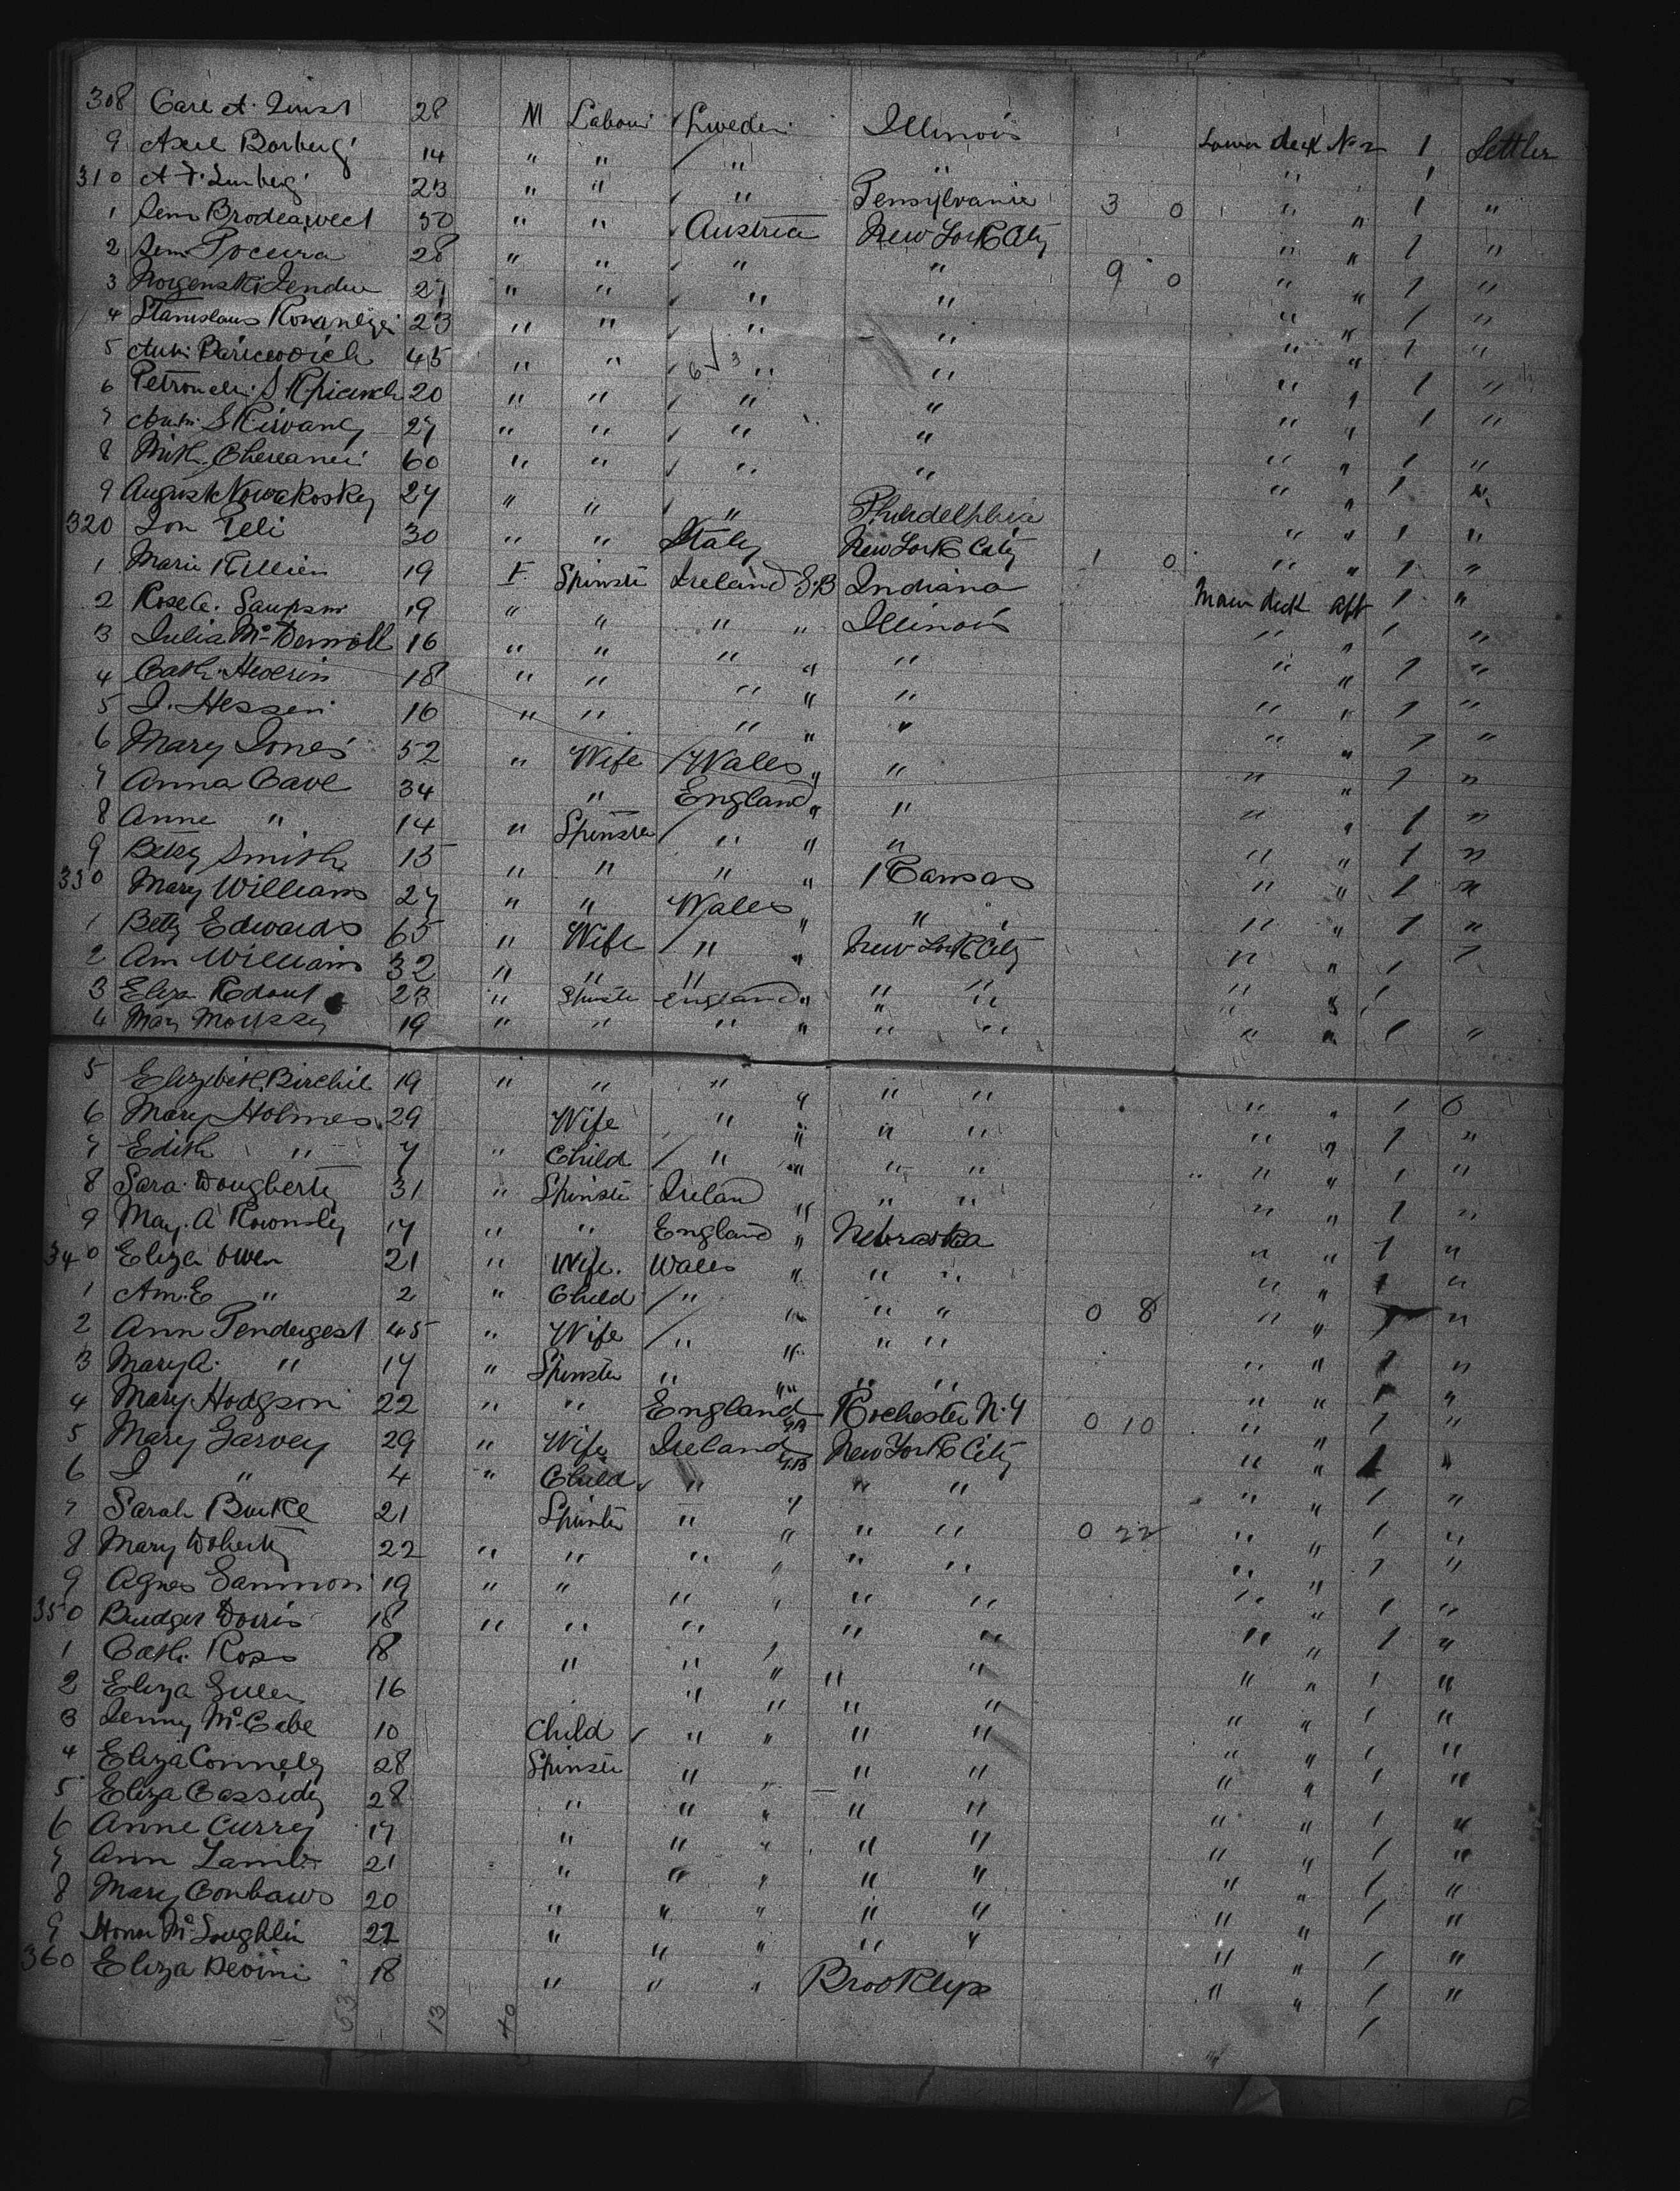 308 Carl A. Quist 28 M Labour Sweden Illinois Lower deck No 2 1 Settler
9 Axel Borberg 14 " " " " " 1
310 A F. Lunberg 23 " " " Pensylvania 3 0 " " 1 "
1 Sem 50 " " Austria New York City " " 1 "
2 Sem Poceira 28 " " " " 9 0 " " 1 "
3 27 " " " " " " 1 "
4 Stanislaus 23 " " " " " " 1 "
5 Anti 45 " " " " " " 1 "
6 20 " " " " " " 1 "
7 27 " " " " " " 1 "
8 60 " " " " " " 1 "
9 August Nowakoskey 27 " " " Philidelphia " " 1 "
320 Peli 30 " " Italy New York City 1 0 " " 1 "
1 Marie Killien 19 F Spinster Ireland G.B Indiana Main deck aft 1 "
2 Rose A. 19 " " " " Illinois " " 1 "
3 Julia McDermott 16 " " " " " " " 1 "
4 Cath. Heverin 18 " " " " " " " 1 "
5 J. Hessen 16 " " " " " " " 1 "
6 Mary Jones 52 " Wife Wales " " " " 1 "
7 Anna Cave 34 " England " " " " 1 "
8 Anne " 14 " Spinster " " " " " 1 "
9 Betsy Smith 15 " " " " Kansas " " 1 "
330 Mary Williams 27 " " Wales " " " " 1 "
1 Betty Edwards 65 " Wife " " New York City " " 1
2 Am Williams 32 " " " " " " " 1
3 Eliza Rdout 23 " Spinster England " " " " " 1 "
4 Mary 19 " " " " " " " " 1 "
5 Elizibeth Birchil 19 " " " " " " " " 1
6 Mary Holmes 29 Wife " " " " " " 1 "
7 Edith " 7 " Child " " " " " " 1 "
8 Sara Dougherty 31 " Spinster Irelan " " " " " 1 "
9 May. A Rownsley 17 " " England " Nebraska " " 1 "
340 Eliza Owen 21 " Wife. Wales " " " " " 1 "
1 Am. E " 2 " Child " " " " 0 8 " " 1 "
2 Ann Pendergest 45 " Wife " " " " " " 1 "
3 Mary A. " 17 " Spinster " " " " " " 1 "
4 Mary Hodgson 22 " " England G.B Rochester N.Y 0 10 " " 1 "
5 Mary Garvey 29 " Wife Ireland G.B New York City " " 1 "
6 J " 4 " Child " " " " " " 1 "
7 Sarah Burke 21 Spinster " " " " 0 22 " " 1 "
8 Mary Doherty 22 " " " " " " " " 1 "
9 Agnes Sammon 19 " " " " " " " " 1 "
350 Bridget Dorris 18 " " " " " " " " 1 "
1 Cath. Ross 18 " " " " " " " 1 "
2 Eliza Gillen 16 " " " " " " 1 "
3 Jenny McCabe 10 Child " " " " " " 1 "
4 Eliza Connely 28 Spinster " " " " " " 1 "
5 Eliza Cassidy 28 " " " " " " " 1 "
6 Anne Currey 17 " " " " " " " 1 "
7 Ann Lamb 21 " " " " " " " 1 "
8 Mary 20 " " " " " " " 1 "
9 Honor McLoughlin 22 " " " " " " " 1 "
360 Eliza Devini 18 " " " Brooklyn " " 1 "
53 13 40